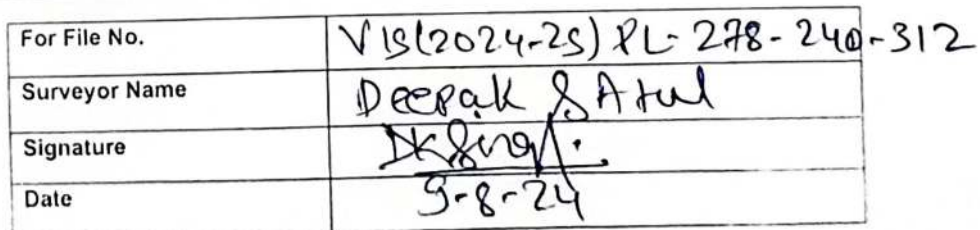 For File No. VIS(2024-25) PL-278-240-312
Surveyor Name Deepak & Atul
Signature DKSingh.
Date 9-8-24